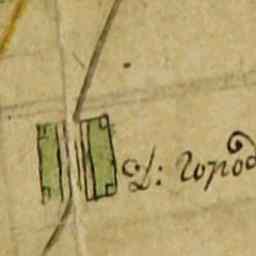 Д: Город